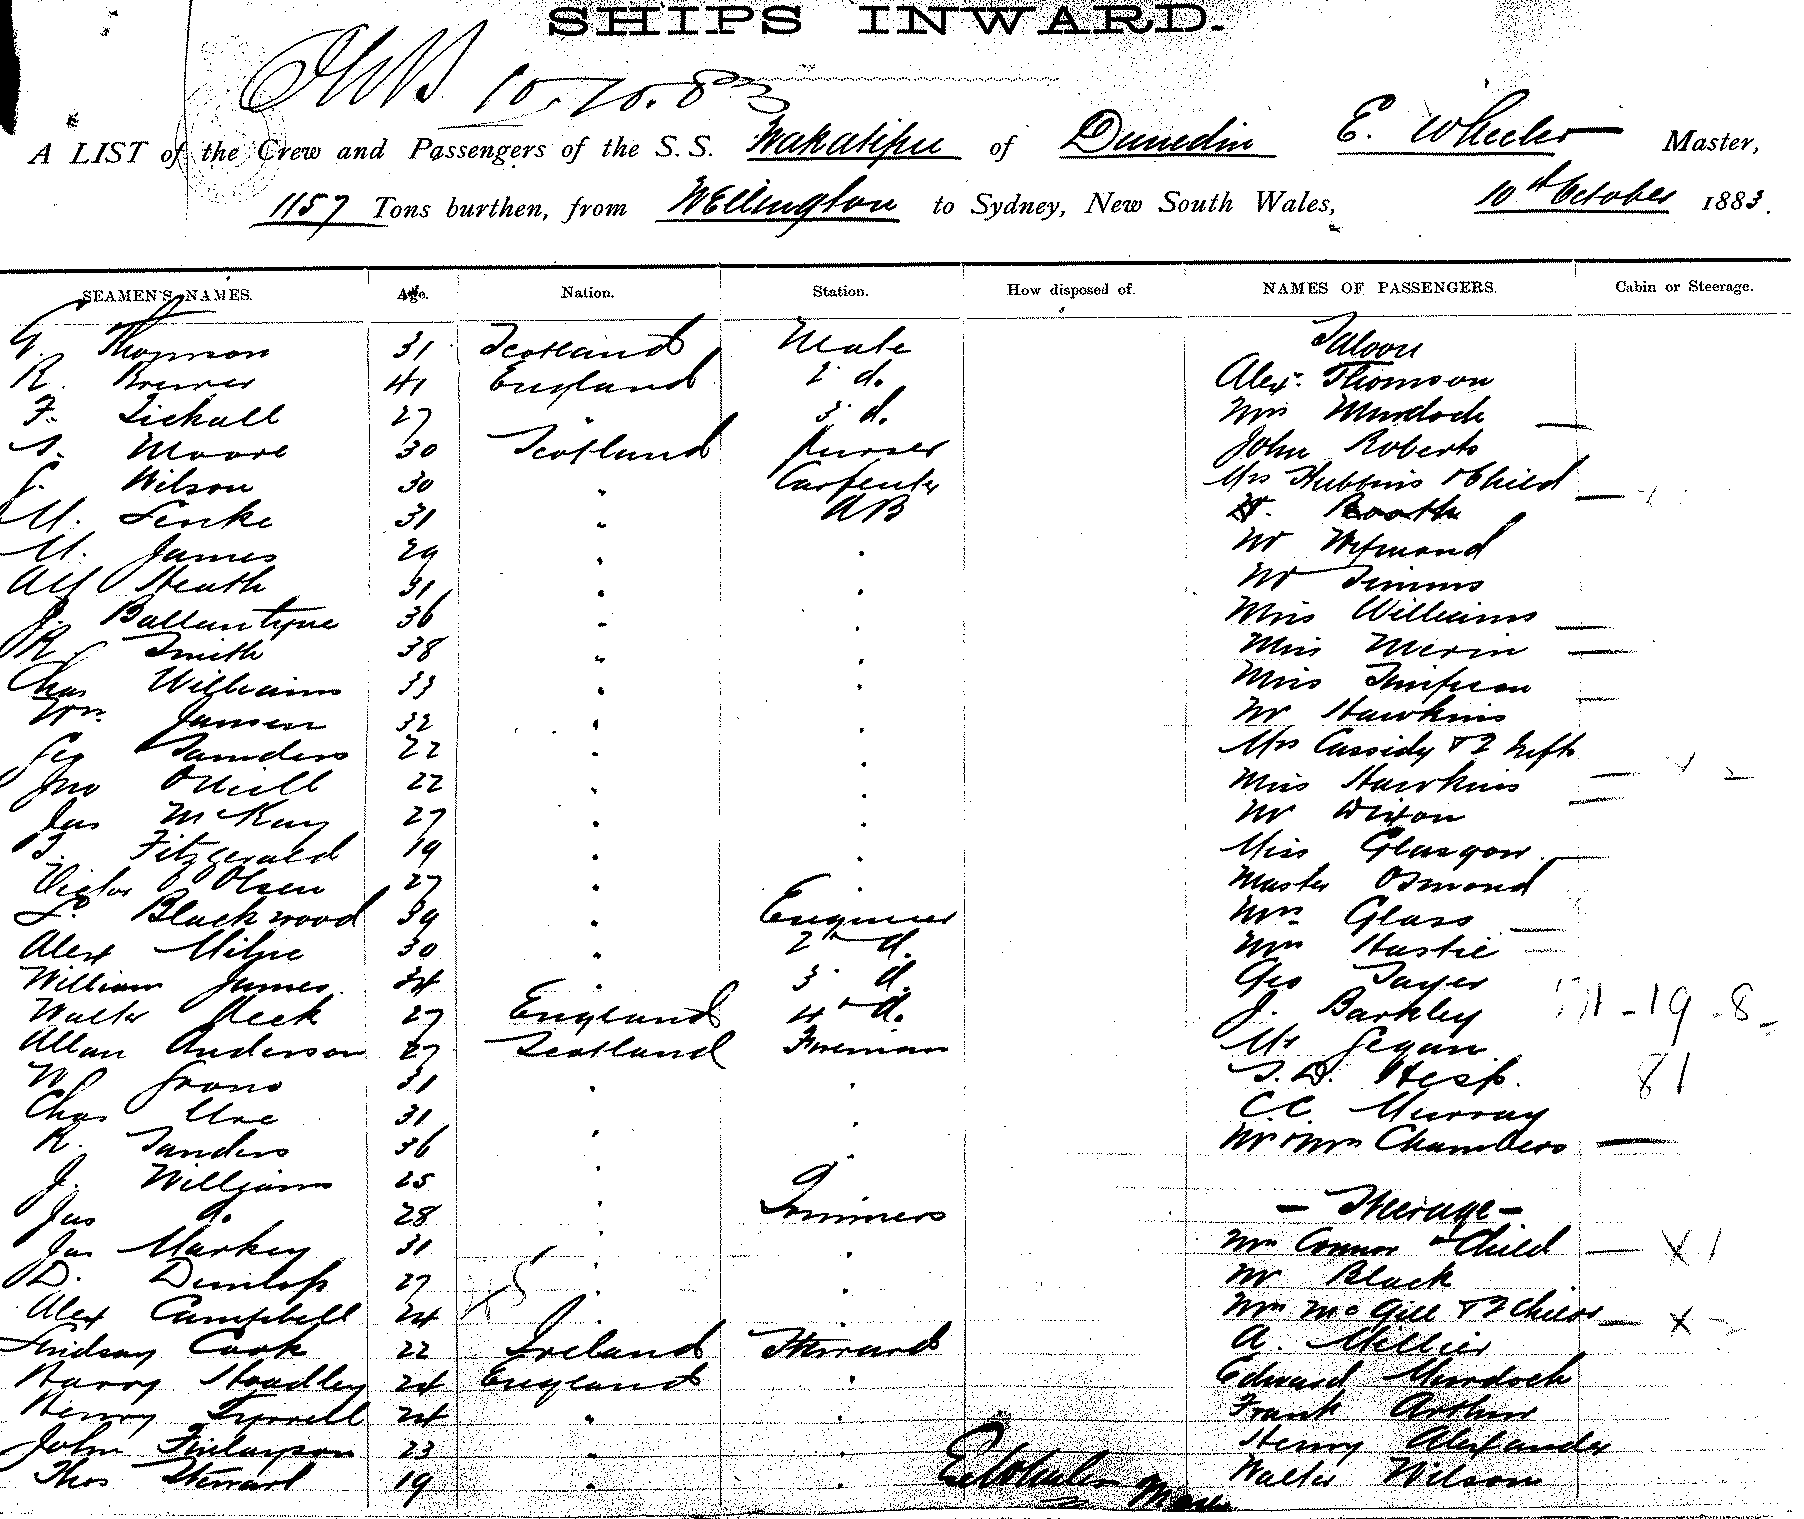 SHIPS INWARD.
10.10.83
A LIST of the Crew and Passengers of the S.S. Wakatipu of Dunedin E. Wheeler Master,
1157 Tons burthen, from Wellington to Sydney, New South Wales, 10th October 1883.
SEAMEN'S NAMES. Age. Nation. Station. How disposed of. NAMES OF PASSENGERS. Cabin or Steerage.
G. Thomson 31 Scotland Mate Saloon
R. Brewer 41 England 2 d. Alexr. Thomson
F. 27 3 d. Mrs Murdoch
Moore 30 Scotland Purser John Roberts
Wilson 30 " Carpenter Mrs Hubbins & Child
M. 31 " AB Booth
M. James 29 " Mr
Alf Heath 31 " Mr Timms
J. Ballantyne 36 " Miss Williams
R. Smith 38 " Miss
Chas Williams 33 " Miss
Wm Jansen 32 " Mr Hawkins
Geo Saunders 22 " Mrs Cassidy & 2
Jno ONeill 22 " Miss Hawkins
Jas McKay 27 " Mr Dixon
T. Fitzgerald 19 " Miss Glasgow
Victor Olsen 27 " Master Osmond
Blackwood 39 " Engineer Mrs Glass
Alex Milne 30 " 2 d. Mrs Hastie
William James 34 " 3 d. Geo Sayer
Walter Meek 27 England 4 d. J. Barkley 19 - 8
Allan Anderson 27 Scotland Fireman Mr Gegan
W 31 " T.D. Hesp. 81
Chas Ure 31 " C.C. Murray
R. Sanders 36 " Mr & Mrs Chambers
J. Williams 25 "
Jas 28 " Trimmers - Steerage -
Jas Markey 31 " Mrs Connor & Child X 1
D. Dunlop 27 " Mr Black
Alex Campbell 24 Mrs McGill & 2 Childn X 2
Lindsay Cook 22 Ireland Steward A. Mellier
Harry Hoadley 24 England " Edward Murdoch
Henry Tyrrell 24 " Frank Arthur
John Finlayson 23 " Henry Alexander
Thos Steward 19 " E Wheeler Master Walter Wilson